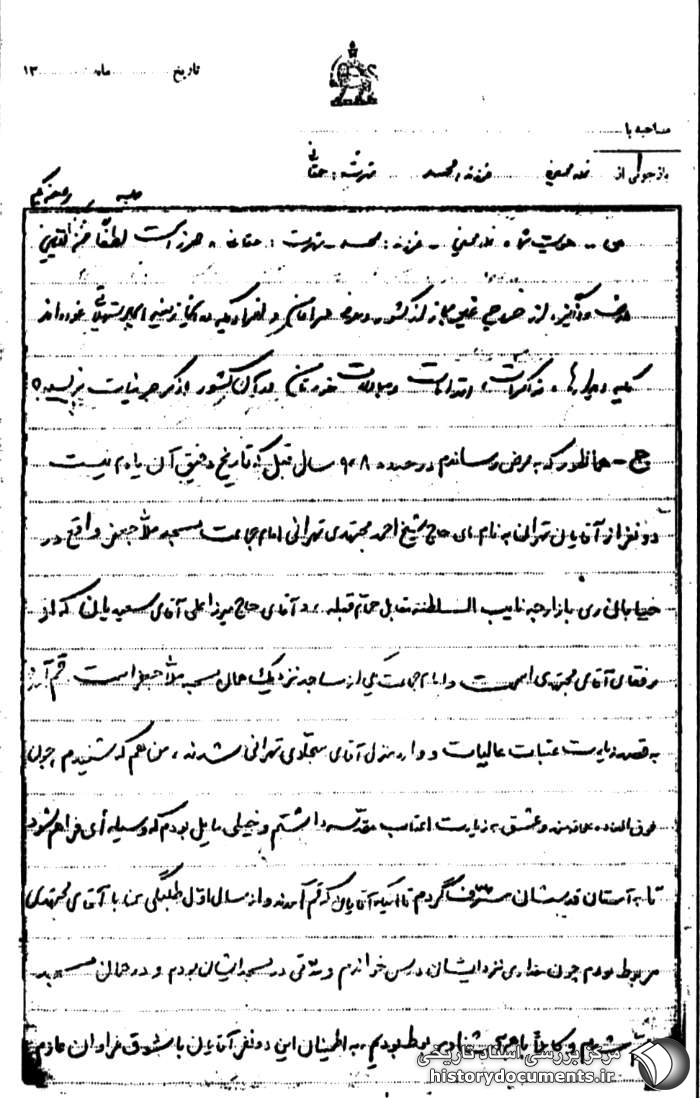 تاریخ ............ ماه ............ ۱۳
مصاحبه با
بازجوئی از فرزند : محمد شهرت : حقانی
س - هویت شما فرزند : محمد - شهرت : حقانی . محرز است لطفاً
از خروج غیر مجاز از کشور و افرادیکه در این زمینه نموده‌اند
کلیه دیدارها ، مذاکرات ، اقدامات و مبادلات خودتان در آن کشور از ذکر جزئیات بنویسید ؟
ج - همانطور که به عرض رساندم در حدود ۸ ، ۹ سال قبل که تاریخ دقیق آن یادم نیست
دو نفر از آقایان تهران به نام‌های حاج شیخ احمد مجتهدی تهرانی امام جماعت مسجد ملا جعفر واقع در
خیابان ری بازارچه نایب السلطنه مقابل حمام قبله ، و آقای حاج میرزا علی آقای سعیدیان که از
رفقای آقای مجتهدی است و امام جماعت یکی از مساجد نزدیک همان مسجد ملا جعفر است قم آمدند
به قصد زیارت عتبات عالیات و وارد منزل آقای سجادی تهرانی شدند ، من هم که شنیدم چون
فوق العاده علاقمند و عشق به زیارت اعتاب مقدسه داشتم و خیلی مایل بودم که وسیله‌ای فراهم شود
تا به آستان قدسشان مشرف گردم تا اینکه آقایان که قم آمدند و از سال اول طلبگی هم با آقای مجتهدی
مربوط بودم چون مقداری نزد ایشان درس خواندم و مدتی در مسجد ایشان بودم و در همان مسجد
و کاملاً با هم مربوط بودیم ، به اطمینان این دو نفر آقایان با شوق فراوان عازم
مرکز بررسی اسناد تاریخی
historydocuments.ir